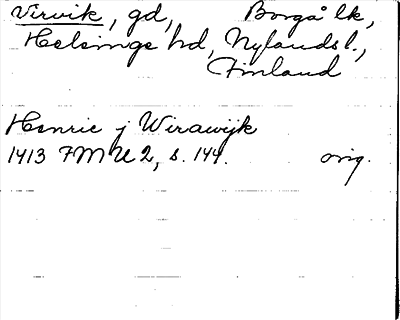 Virvik, gd, Borgå lk,
Helsinge hd, Nylands l.,
Finland
Henric j Wirawijk
1413 FMU 2, s. 144. orig.